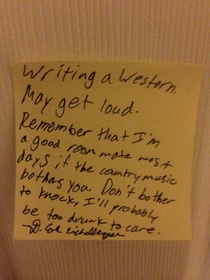 Writing a Western.
May get loud.
Remember that I'm
a good room mate most
days if the country music
bothers you. Don't bother
to knock, I'll probably
be too drunk to care.